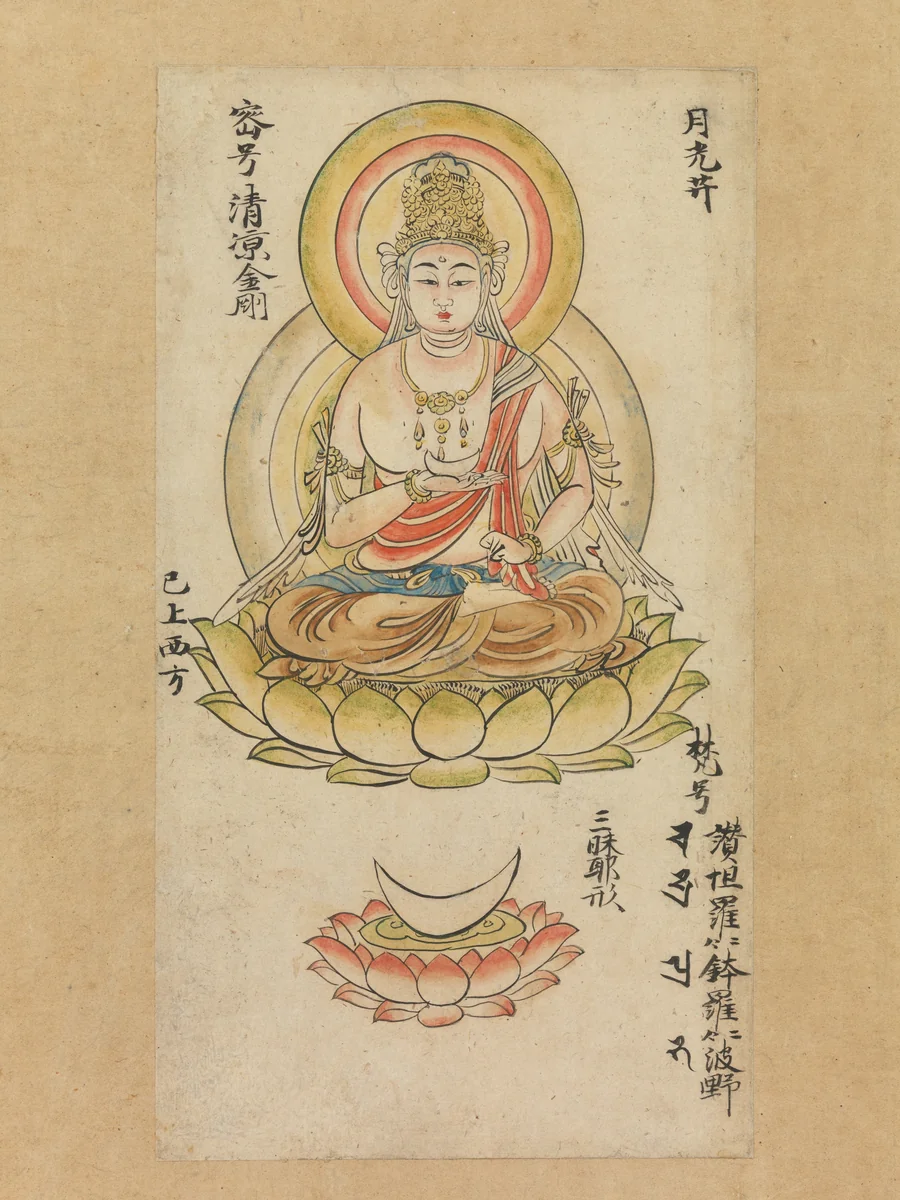 月光菩
密号 清凉金剛
已上西方
梵号
讃怛羅二合鉢羅二合波野
三昧耶形